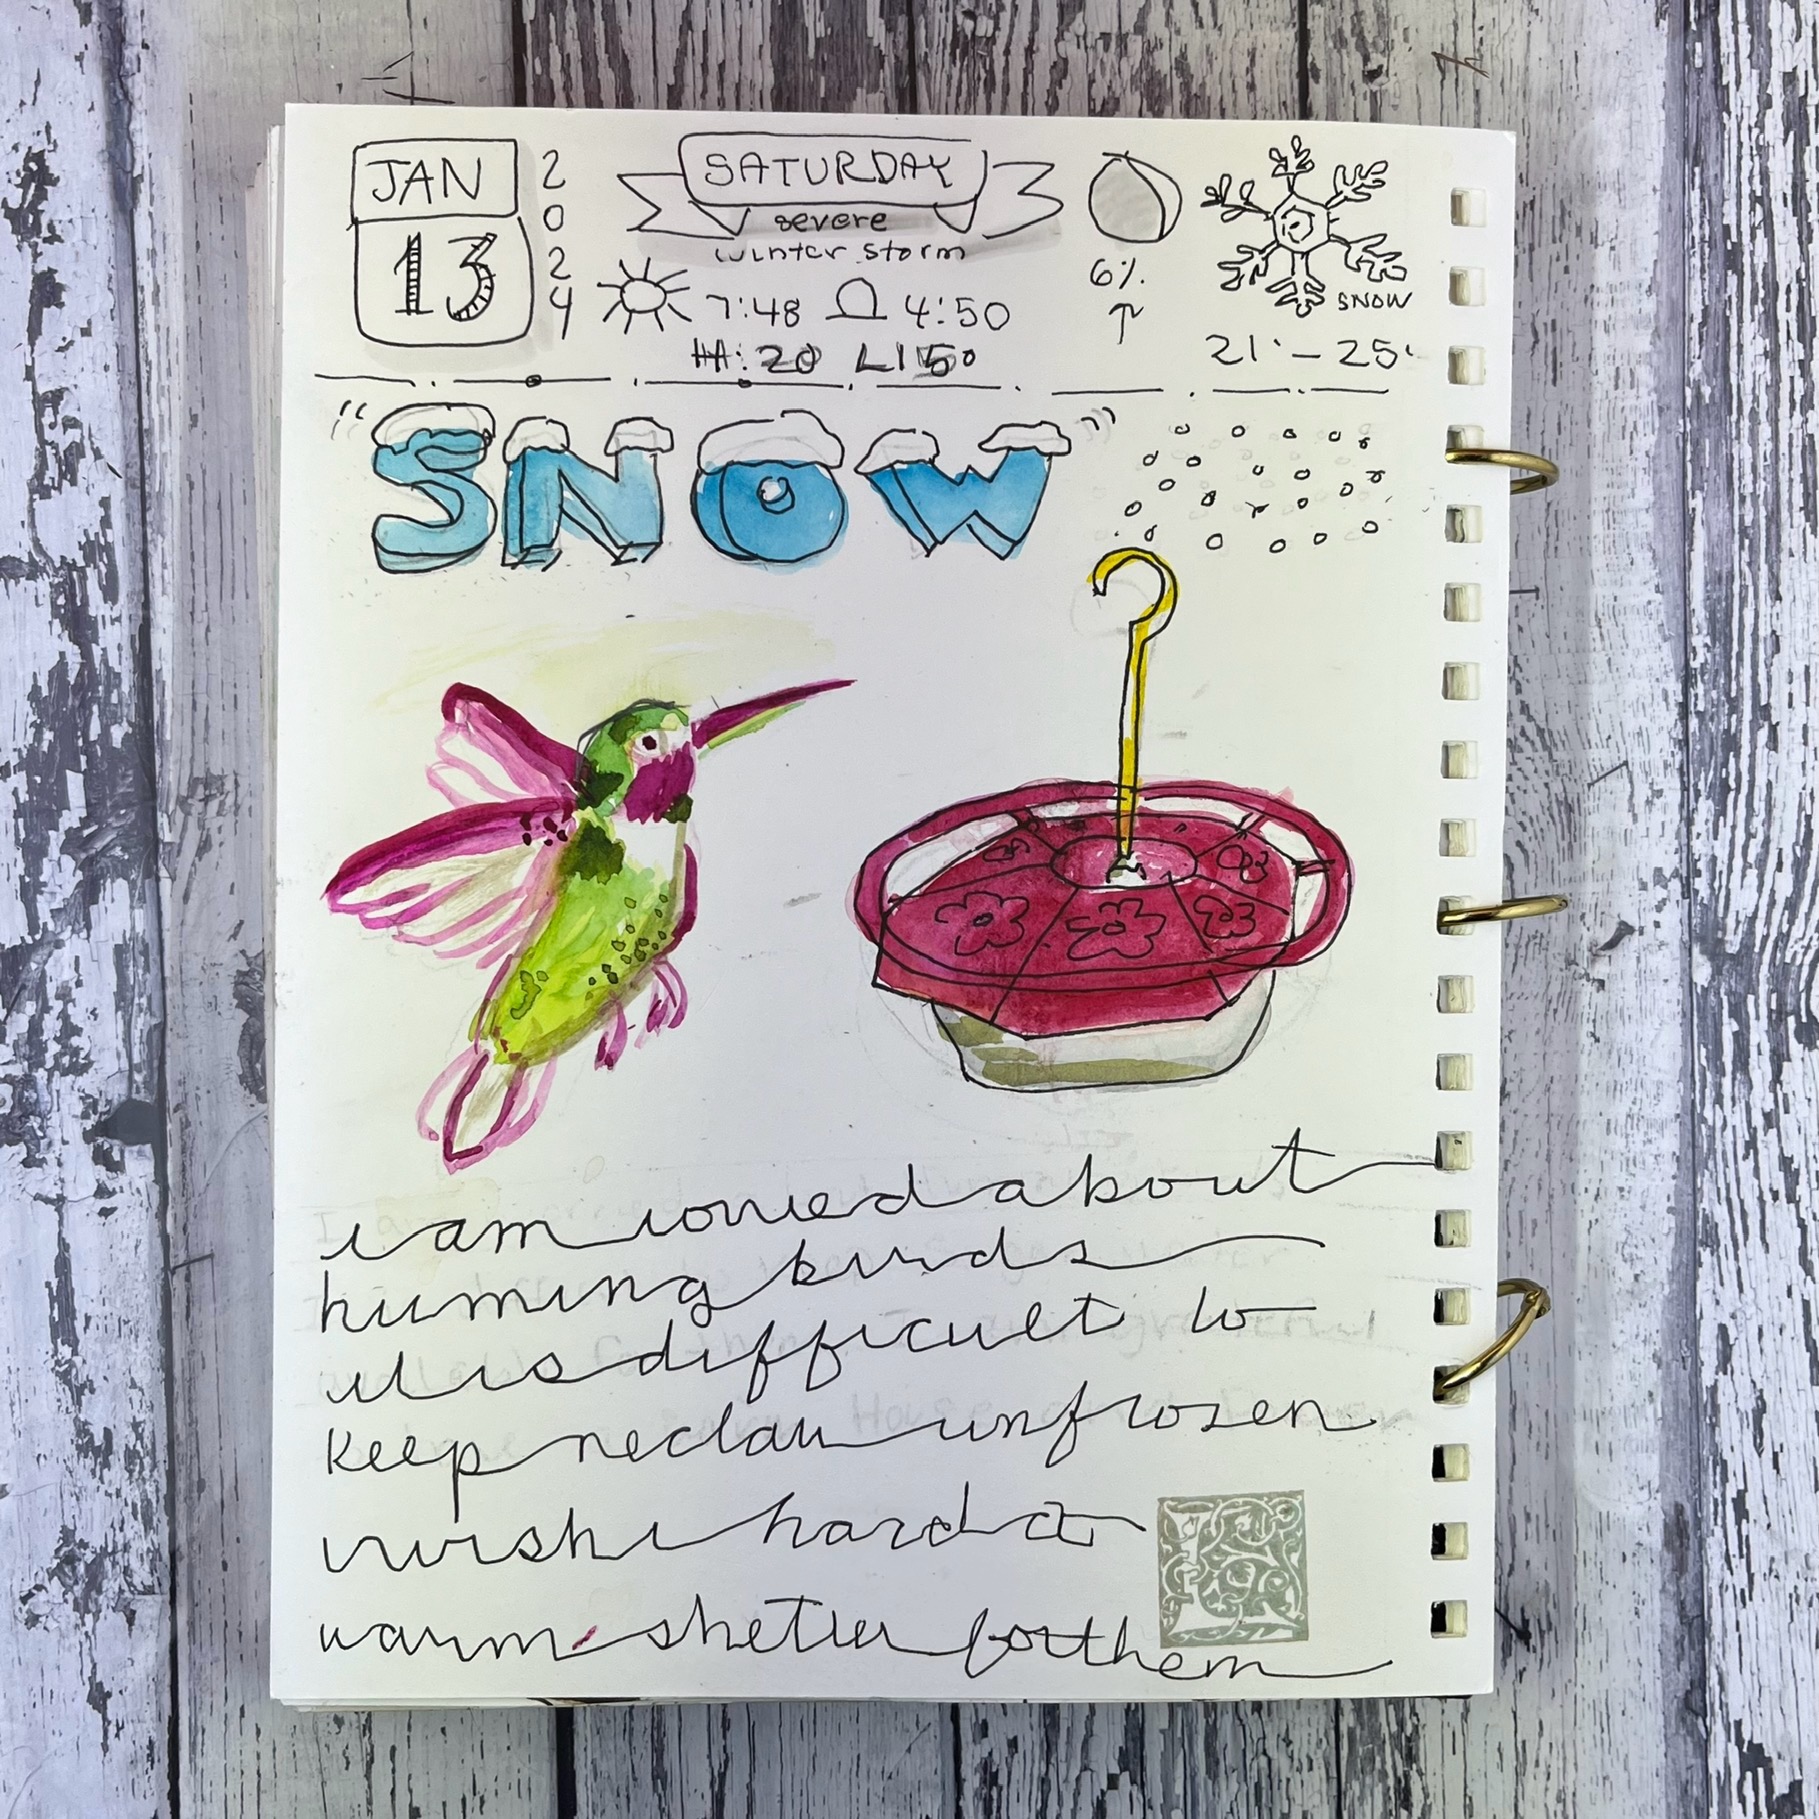 JAN
13
2024
SATURDAY
severe
winter storm
7:48 4:50
6%
SNOW
21° – 25°
"SNOW"
i am worried about
huming birds
it is difficult to
keep nectar unfrozen
i wish i had a
warm shelter for them